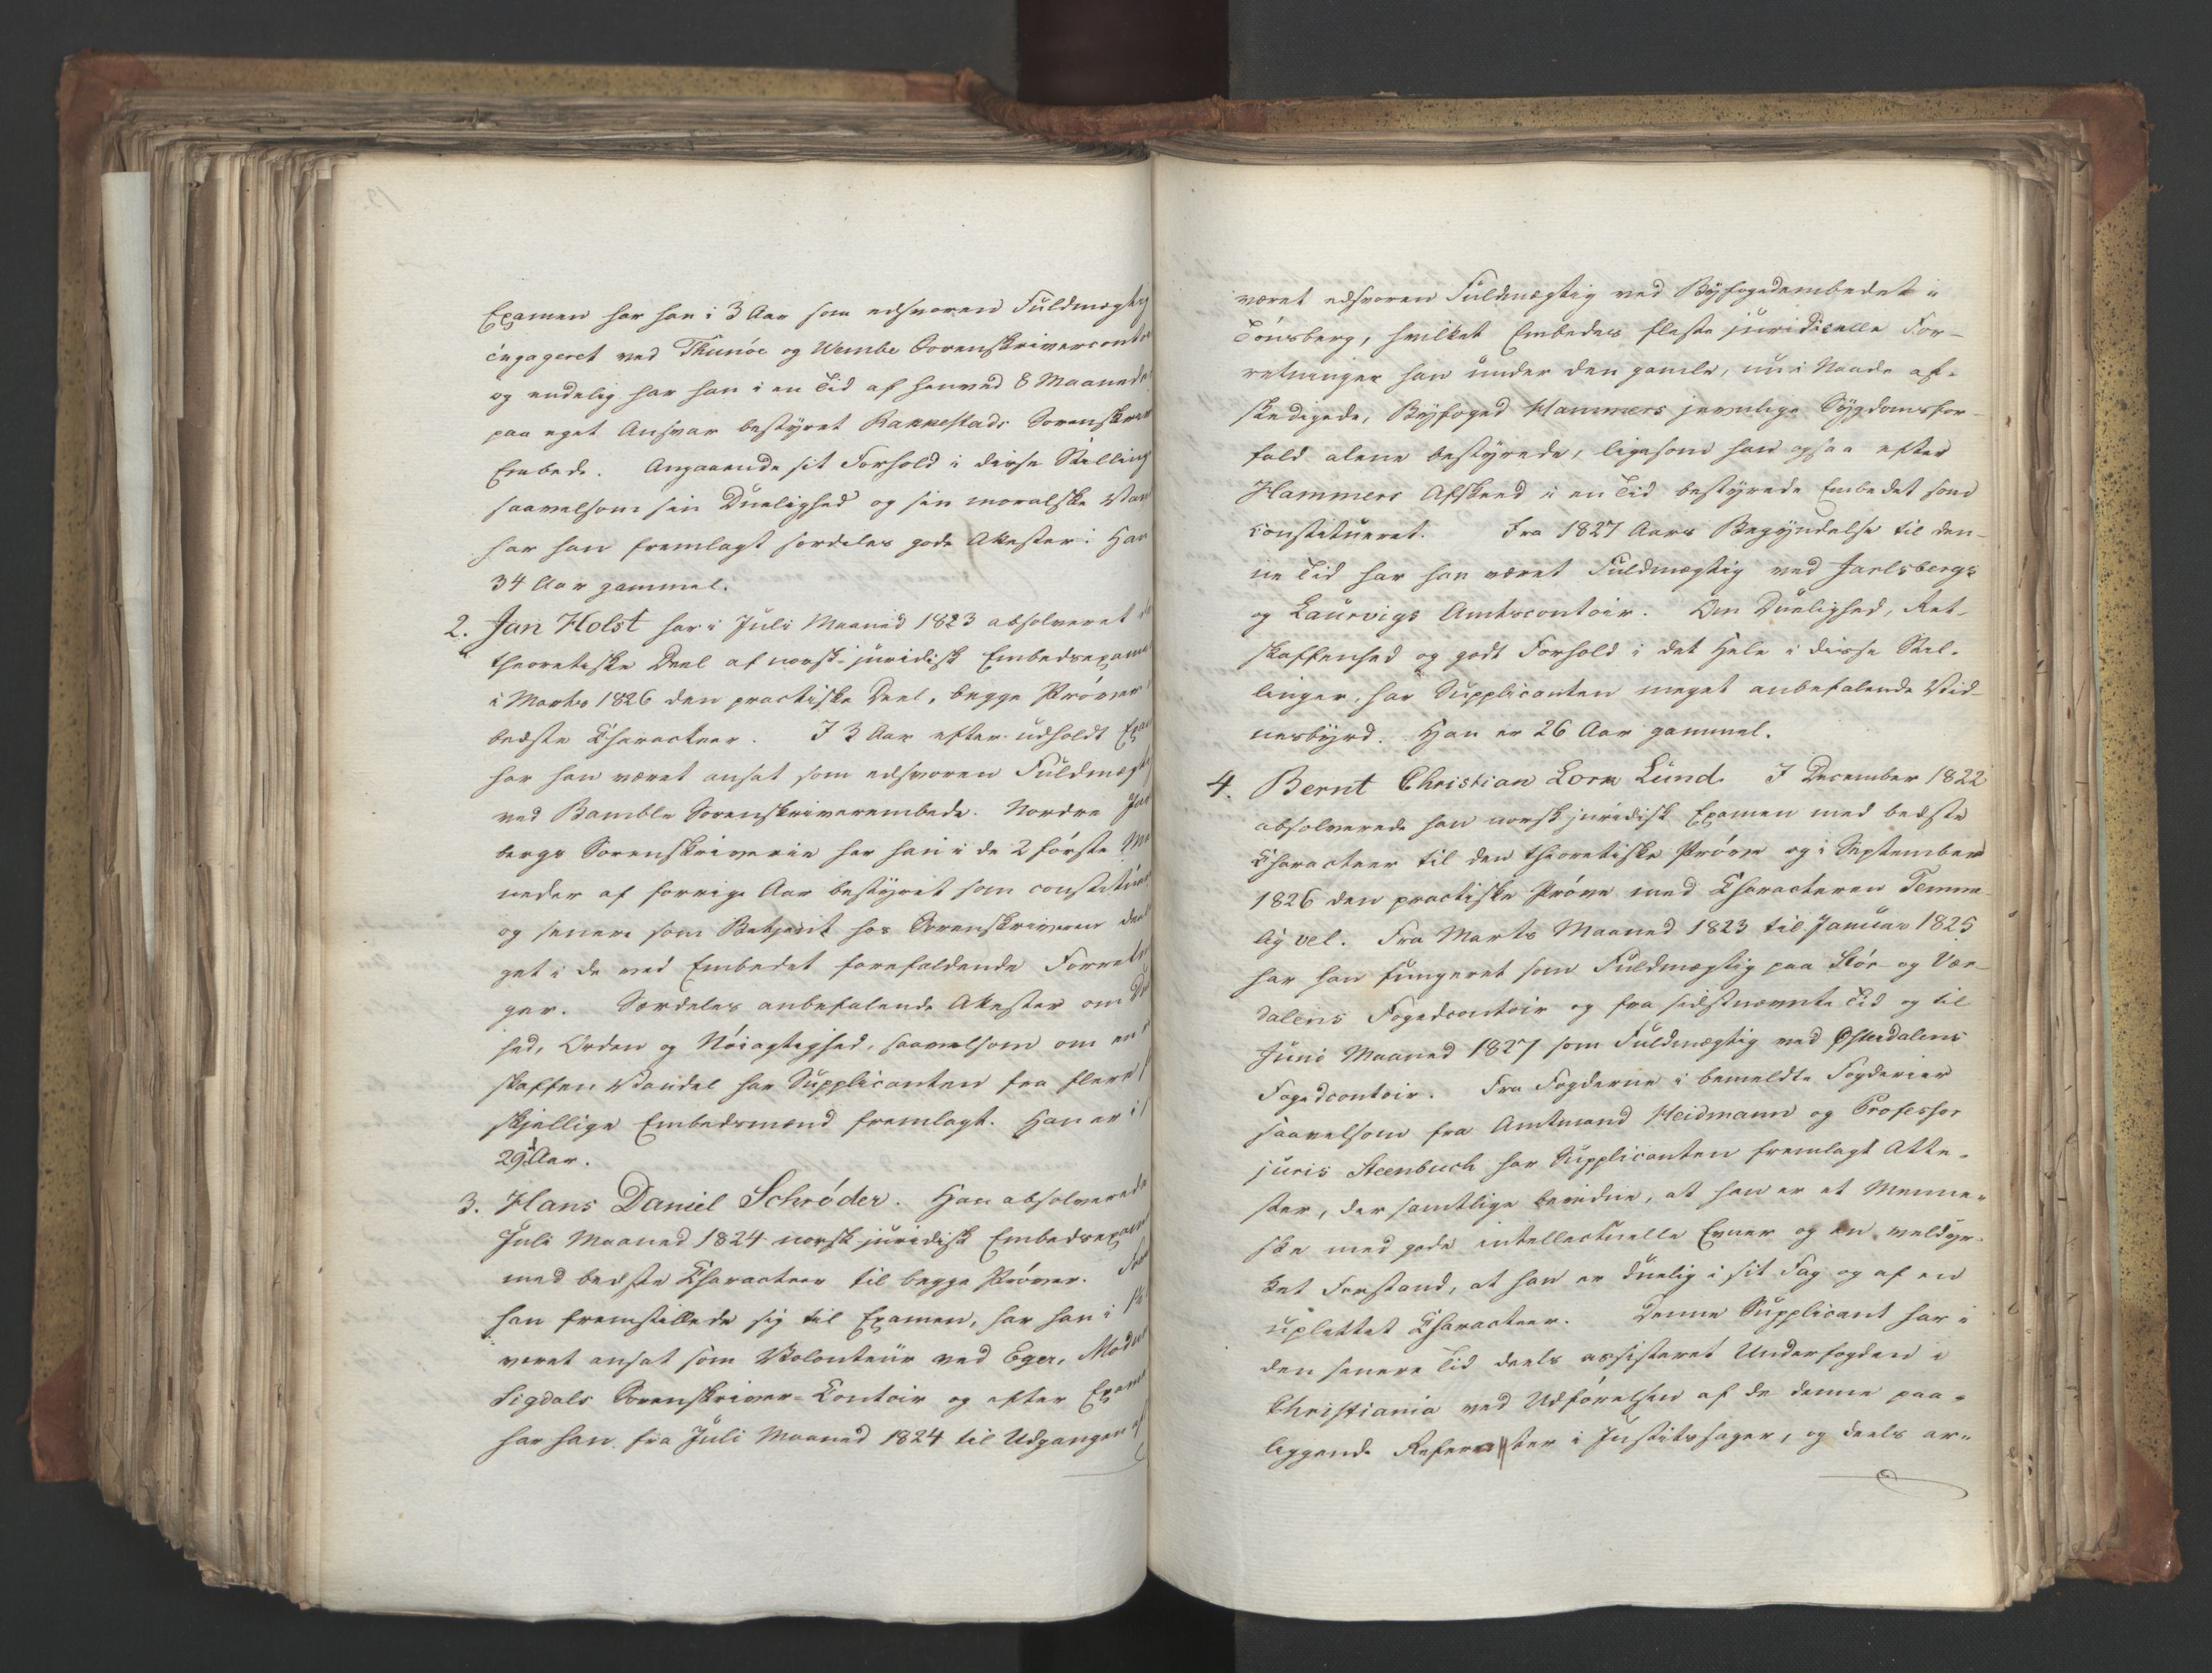 Examen har han i 3 Aar som edsvoren Fuldmægtig
engageret ved Thunøe og Wembe Sorenskrivercontoir
og endelig har han i en Tid af henved 8 Maaneder
paa eget Ansvar bestyret Rakkestads Sorenskriver
Embede. Angaaende sit Forhold i disse Stilling
saavelsom sin Duelighed og sin moralske Van
har han fremlagt særdeles gode Attester. Han
34 Aar gammel.
2. Jan Holst har i Juli Maaned 1823 absolveret
theoretiske Deel af norsk-juridisk Embedsexamen
i Marts 1826 den practiske Deel, begge Prøver
bedste Charakteer. I 3 Aar efter udholdt Exam
har han været ansat som edsvoren Fuldmægtig
ved Bamble Sorenskriverembede. Nordre Jarls
bergs Sorenskriverie har han i de 2 første Ma
neder af forrige Aar bestyret som constitueret
og senere som Betjent hos Sorenskriveren deel
get i de ved Embedet forefaldende Forretnin
ger. Særdeles anbefalende Attester om Due
hed, Orden og Nøiagtighed, saavelsom om en
skaffen Vandel har Supplicanten fra flere
skjellige Embedsmænd fremlagt. Han er i
29 Aar.
3. Hans Daniel Schrøder. Han absolverede
Juli Maaned 1824 norsk-juridisk Embedsexamen
med bedste Charakteer til begge Prøver.
han fremstillede sig til Examen, har han i
været ansat som Volonteur ved Eger, Modum
Sigdals Sorenskriver-Contoir og efter Exame
har han fra Juli Maaned 1824 til Udgangen af
været edsvoren Fuldmægtig ved Byfogedembedet i
Tønsberg, hvilket Embedes fleste juridiske For-
retninger han under den gamle, nu i Naade af-
skedigede, Byfoged Hammers jevnlige Sygdomsfor-
fald alene bestyrede, ligesom han ogsaa efter
Hammers Afskeed i en Tid bestyrede Embedet som
constitueret. Fra 1827 Aars Begyndelse til den-
ne Tid har han været Fuldmægtig ved Jarlsbergs
og Laurvigs Amtscontoir. Om Duelighed, Ret-
skaffenhed og godt Forhold i det Hele i disse Stil-
linger, har Supplicanten meget anbefalende Vid-
nesbyrd. Han er 26 Aar gammel.
4. Bernt Christian Lorn Lund. I December 1822
absolverede han norsk juridisk Examen med bedste
Characteer til den theoretiske Prøve og i September
1826 den practiske Prøve med Characteren Temme-
lig vel. Fra Marts Maaned 1823 til Januar 1825
har han fungeret som Fuldmægtig paa Stør- og Vær-
dalens Fogedcontoir og fra sidstnævnte Tid og til
Juni Maaned 1827 som Fuldmægtig ved Østerdalens
Fogedcontoir. Fra Fogderne i bemeldte Fogderier
saavelsom fra Amtmand Heidmann og Professor
juris Steenbuch har Supplicanten fremlagt Atte-
ster, der samtlige bevidne, at han er et Menne-
ske med gode intellectuelle Evner og en veldyr-
ket Forstand, at han er duelig i sit Fag og af en
uplettet Characteer. Denne Supplicant har i
den senere Tid deels assisteret Underfogden i
Christiania ved Udførelsen af de denne paa-
liggende i Justitssager, og deels ar-